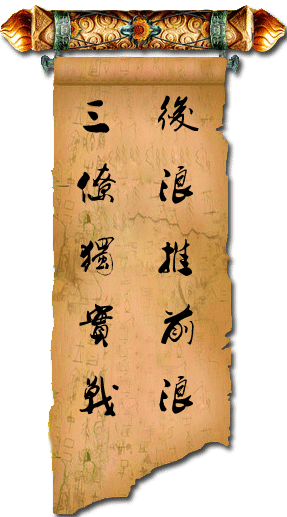 後浪推前浪
三僚獨實戰